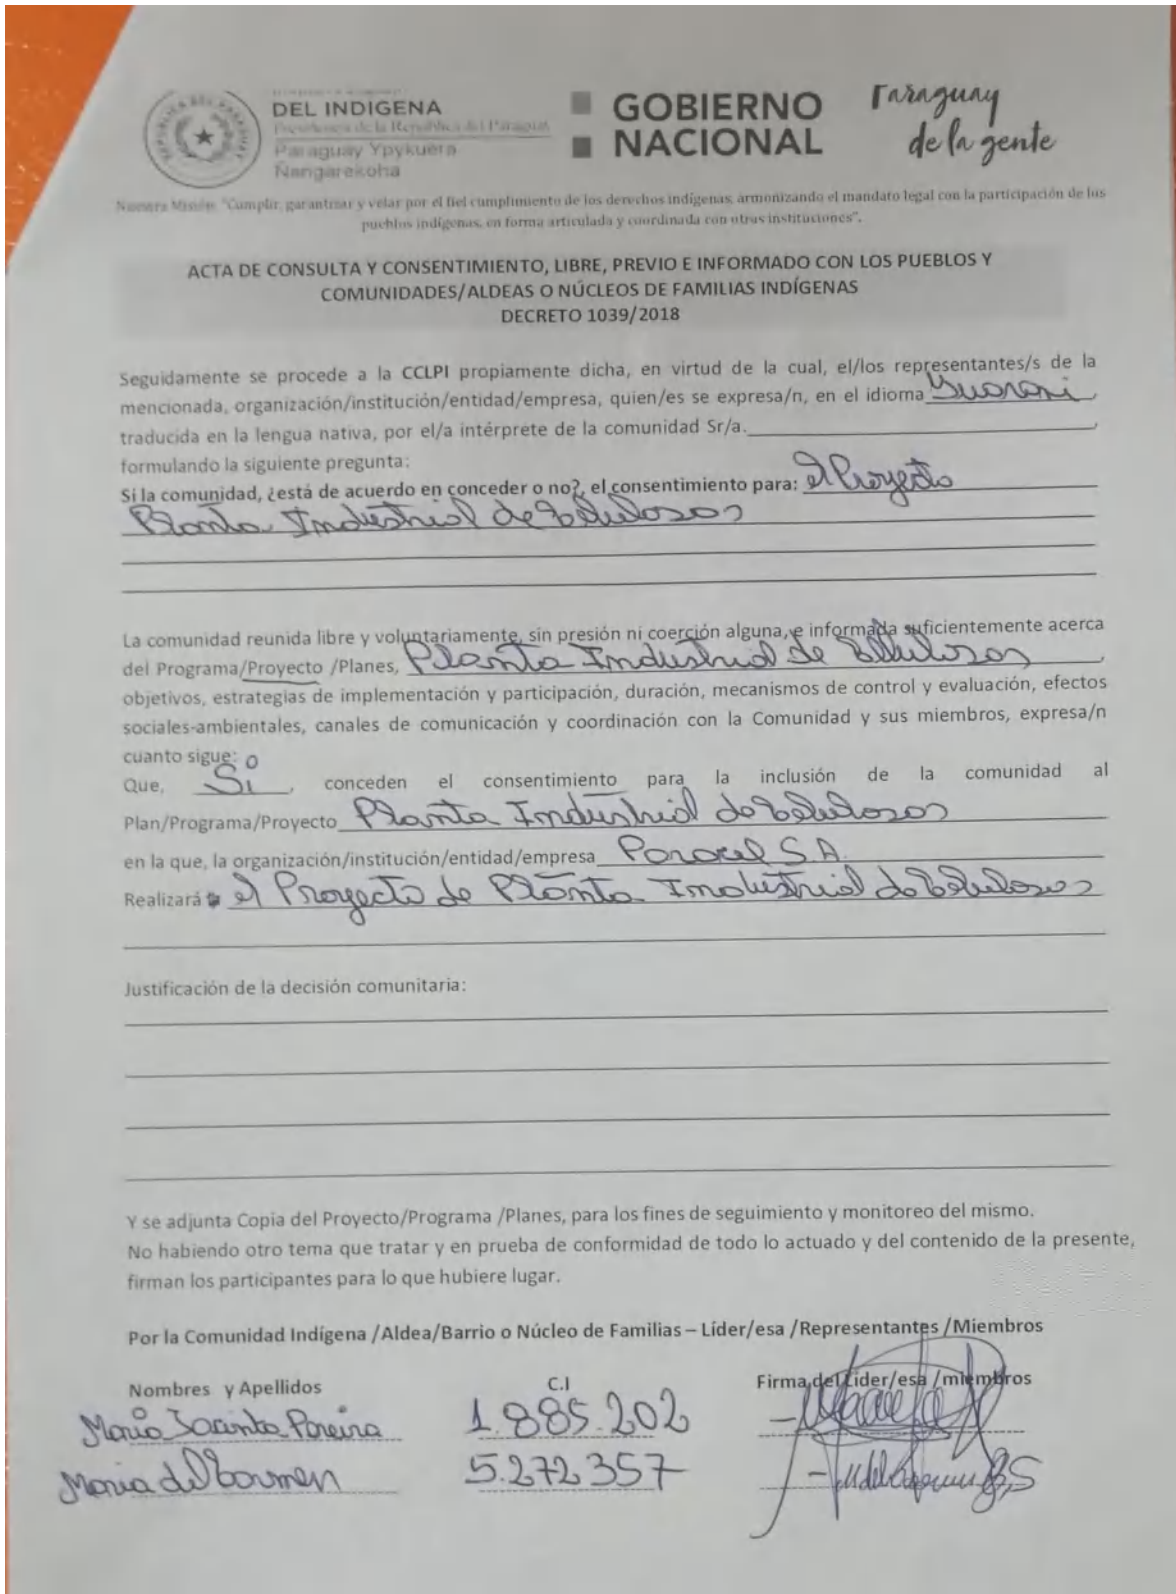 DEL INDIGENA
Presidencia de la República del Paraguay
Paraguay Ypykuéra
Ñangarekoha
GOBIERNO
NACIONAL
Paraguay
de la gente
Nuestra Misión: "Cumplir, garantizar y velar por el fiel cumplimiento de los derechos indígenas, armonizando el mandato legal con la participación de los
pueblos indígenas, en forma articulada y coordinada con otras instituciones".
ACTA DE CONSULTA Y CONSENTIMIENTO, LIBRE, PREVIO E INFORMADO CON LOS PUEBLOS Y
COMUNIDADES/ALDEAS O NÚCLEOS DE FAMILIAS INDÍGENAS
DECRETO 1039/2018
Seguidamente se procede a la CCLPI propiamente dicha, en virtud de la cual, el/los representantes/s de la
mencionada, organización/institución/entidad/empresa, quien/es se expresa/n, en el idioma Guarani,
traducida en la lengua nativa, por el/a intérprete de la comunidad Sr/a.,
formulando la siguiente pregunta:
Si la comunidad, ¿está de acuerdo en conceder o no?, el consentimiento para: el Proyecto
Planta Industrial de Celulosas
La comunidad reunida libre y voluntariamente, sin presión ni coerción alguna, e informada suficientemente acerca
del Programa/Proyecto /Planes, Planta Industrial de Celulosas,
objetivos, estrategias de implementación y participación, duración, mecanismos de control y evaluación, efectos
sociales-ambientales, canales de comunicación y coordinación con la Comunidad y sus miembros, expresa/n
cuanto sigue:
Que, Si, conceden el consentimiento para la inclusión de la comunidad al
Plan/Programa/Proyecto Planta Industrial de Celulosas
en la que, la organización/institución/entidad/empresa Paracel S.A.
Realizará el Proyecto de Planta Industrial de Celulosas
Justificación de la decisión comunitaria:
Y se adjunta Copia del Proyecto/Programa /Planes, para los fines de seguimiento y monitoreo del mismo.
No habiendo otro tema que tratar y en prueba de conformidad de todo lo actuado y del contenido de la presente,
firman los participantes para lo que hubiere lugar.
Por la Comunidad Indígena /Aldea/Barrio o Núcleo de Familias – Líder/esa /Representantes /Miembros
Nombres y Apellidos C.I Firma del Lider/esa /miembros
Maria Jacinta Pereira 1.885.202
Maria del Carmen 5.272357